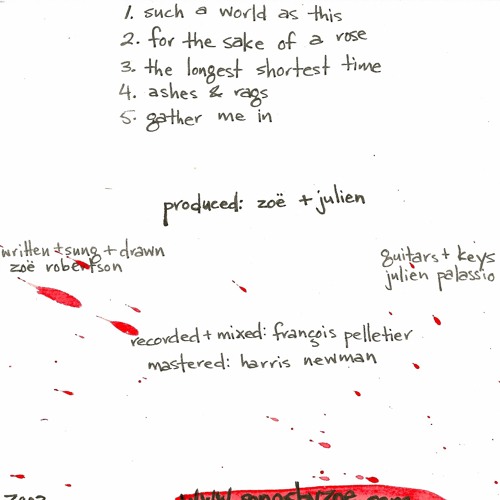 1. such a world as this
2. for the sake of a rose
3. the longest shortest time
4. ashes & rags
5. gather me in
produced: zoë + julien
written + sung + drawn
zoë robertson
guitars + keys
julien palassio
recorded + mixed: françois pelletier
mastered: harris newman